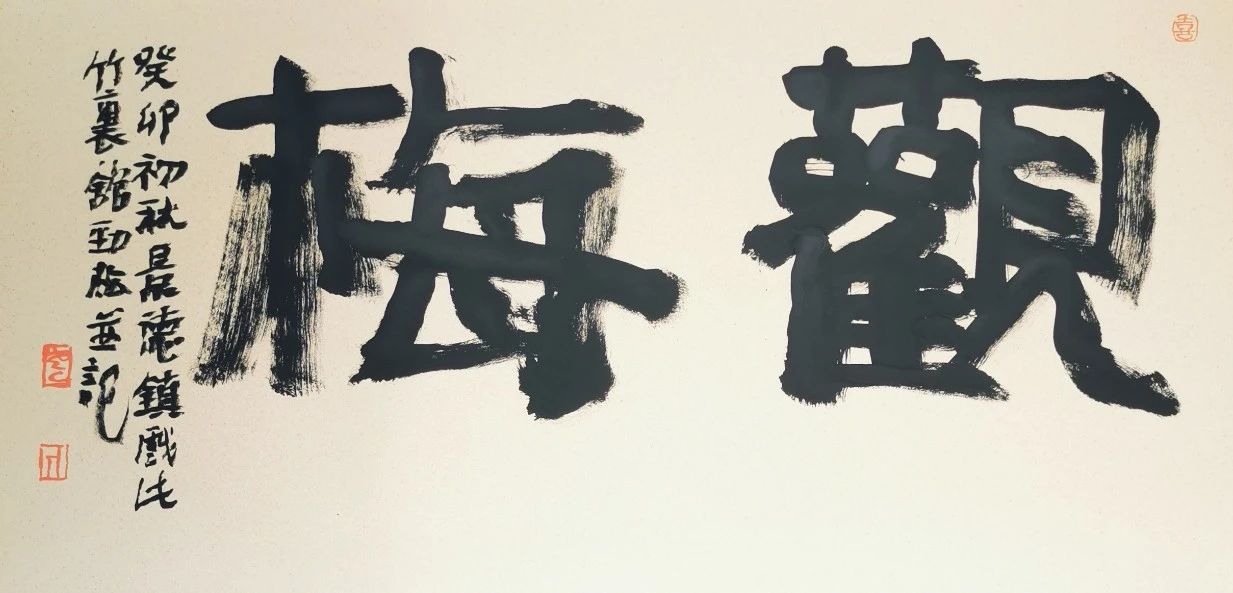 觀梅
癸卯初秋景德鎮戲作
竹裏館勁松並記